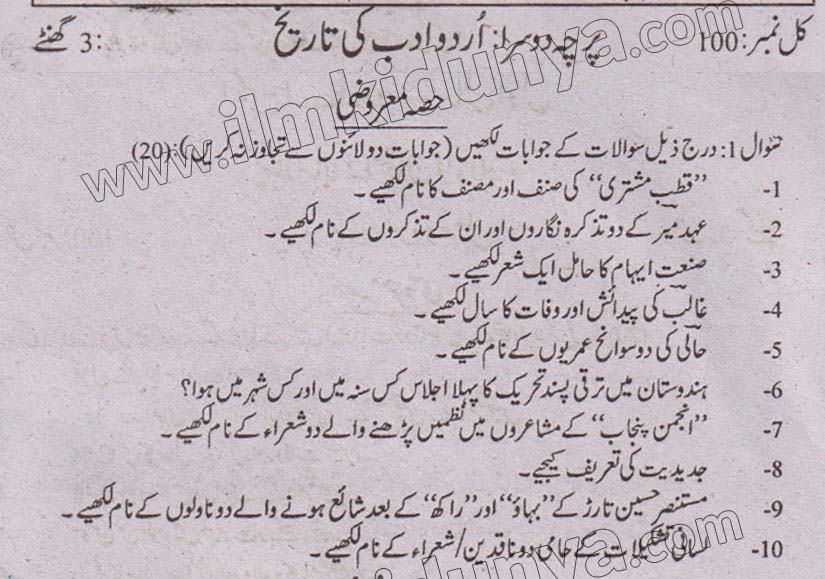 کل نمبر: 100 پرچہ دوسرا: اُردو ادب کی تاریخ 3: گھنٹے
حصہ معروضی
سوال 1: درج ذیل سوالات کے جوابات لکھیں (جوابات دو لائنوں سے تجاوز نہ کریں): (20)
1- ”قطب مشتری“ کی صنف اور مصنف کا نام لکھیے۔
2- عہد میر کے دو تذکرہ نگاروں اور ان کے تذکروں کے نام لکھیے۔
3- صنعتِ ایہام کا حامل ایک شعر لکھیے۔
4- غالب کی پیدائش اور وفات کا سال لکھیے۔
5- حالی کی دو سوانح عمریوں کے نام لکھیے۔
6- ہندوستان میں ترقی پسند تحریک کا پہلا اجلاس کس سنہ میں اور کس شہر میں ہوا؟
7- ”انجمن پنجاب“ کے مشاعروں میں نظمیں پڑھنے والے دو شعراء کے نام لکھیے۔
8- جدیدیت کی تعریف کیجیے۔
9- مستنصر حسین تارڑ کے ”بہاؤ“ اور ”راکھ“ کے بعد شائع ہونے والے دو ناولوں کے نام لکھیے۔
10- لسانی تشکیلات کے حامی دو ناقدین/شعراء کے نام لکھیے۔
www.ilmkidunya.com